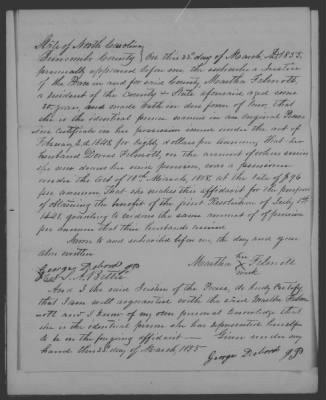 State of North Carolina
Buncombe County, On this 22d day of March, A.D. 1855,
personally appeared before me the subscriber a Justice
of the Peace in and for said County Martha Felmott,
a resident of the County & State aforesaid aged some
years, and made oath in due form of law, that
she is the identical person named in an original Pension
Certificate in her possession issued under the act of
February 2d 1848. for Eighty dollars per annum that her
husband Dover Felmott, on the account of whose services
she now draws the said pension, was a pensioner
under the act of 18th March, 1818. at the rate of $96
per annum That she makes this affidavit for the purpose
of obtaining the benefit of the joint Resolution of July 1st
1848 granting to widows the same amount of pension
per annum that their husbands received
Sworn to and subscribed before me, the day and year
above written
George Debord JP
Martha her X mark Felmott
And I the said Justice of the Peace, do hereby certify
that I am well acquainted with the said Martha Felm
ott and I know of my own personal knowledge that
she is the identical person she has represented herself
to be in the forgoing affidavit — Given under my
hand this 22d day of March 1855
George Debord J.P.